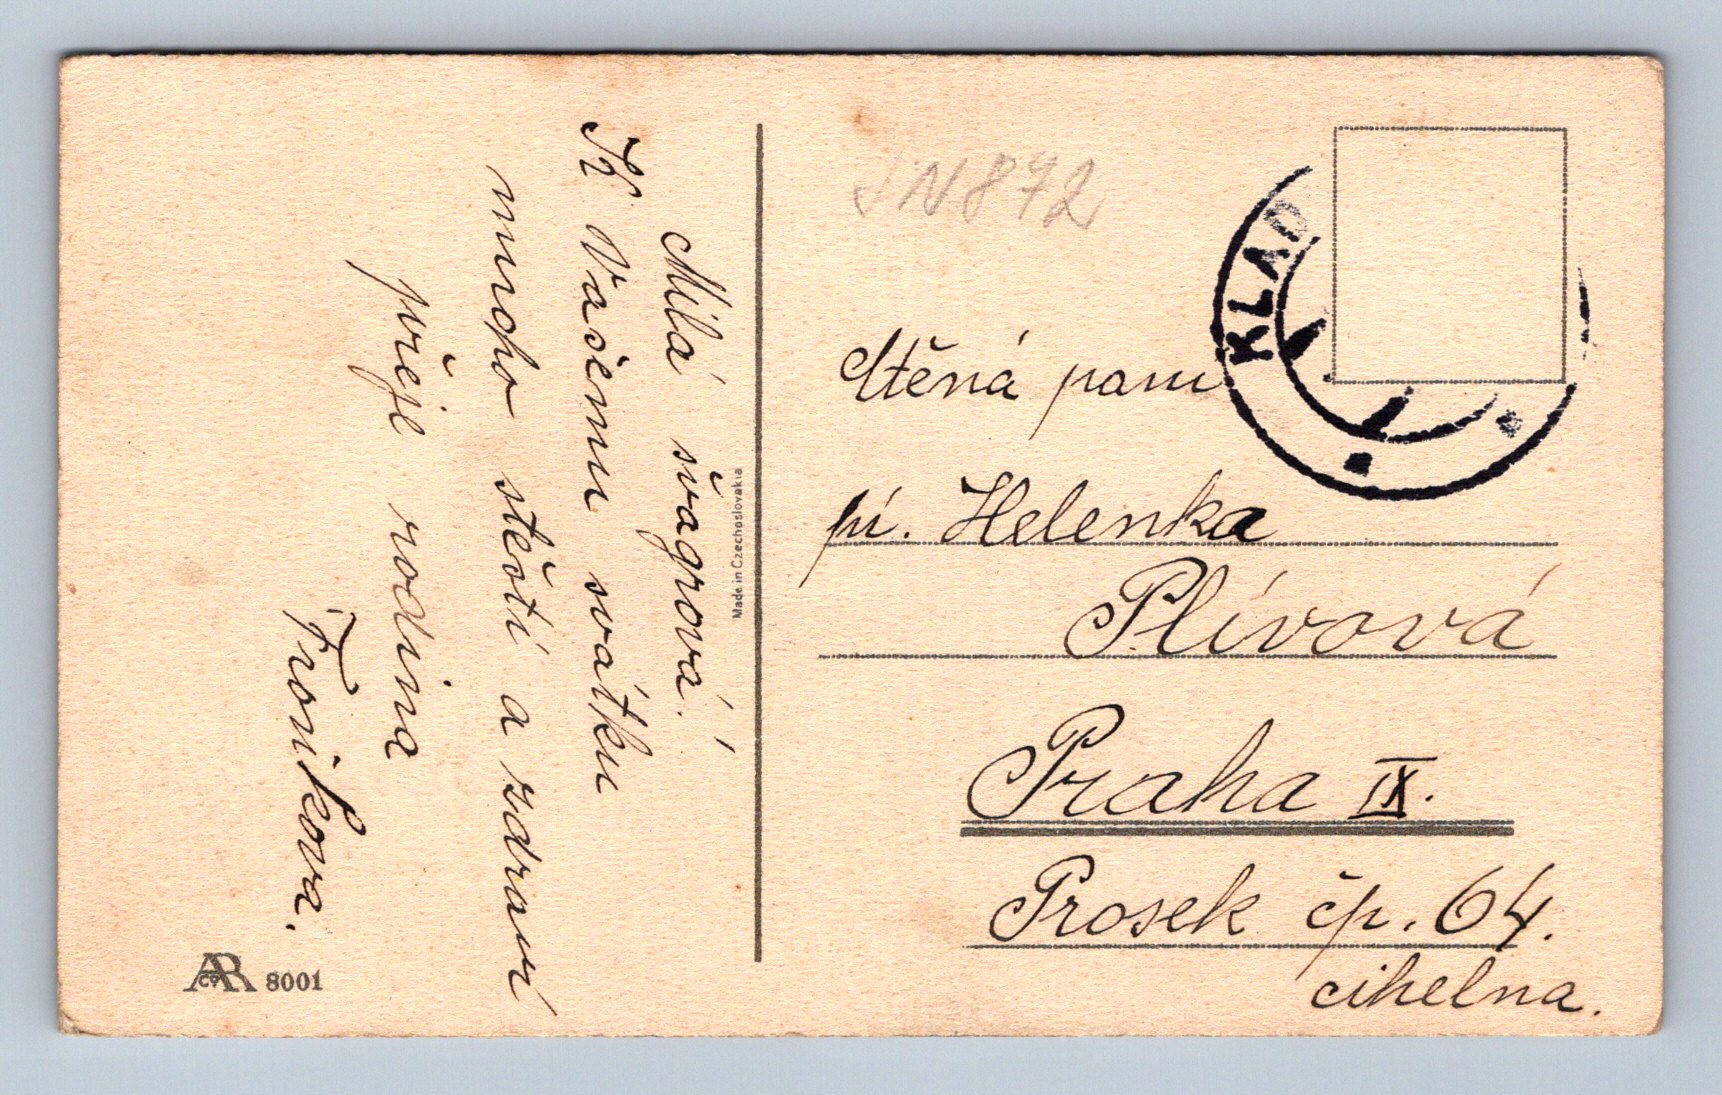 Milá švagrová!
K Vašemu svátku
mnoho štěstí a zdraví
přeje rodina
Made in Czechoslovakia
8001
JN872
KLAD
Ctěná paní
pí. Helenka
Plívová
Praha IX.
Prosek čp. 64.
cihelna.